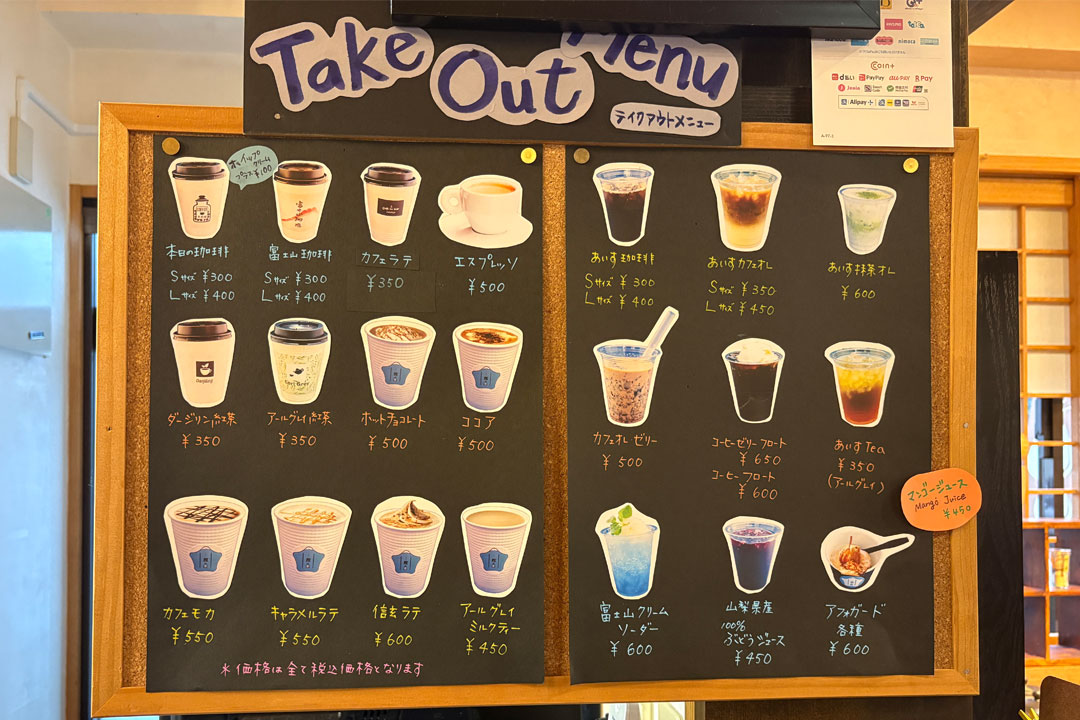 Take Out Menu
テイクアウトメニュー
Coin+
d払い PayPay au PAY R Pay
Alipay+
ホイップ
クリーム
プラス¥100
本日の珈琲
Sサイズ ¥300
Lサイズ ¥400
富士山珈琲
Sサイズ ¥300
Lサイズ ¥400
カフェラテ
¥350
エスプレッソ
¥500
ダージリン紅茶
¥350
アールグレイ紅茶
¥350
ホットチョコレート
¥500
ココア
¥500
カフェモカ
¥550
キャラメルラテ
¥550
信玄ラテ
¥600
アールグレイ
ミルクティー
¥450
※価格は全て税込価格となります
あいす珈琲
Sサイズ ¥300
Lサイズ ¥400
あいすカフェオレ
Sサイズ ¥350
Lサイズ ¥450
あいす抹茶オレ
¥600
カフェオレゼリー
¥500
コーヒーゼリーフロート
¥650
コーヒーフロート
¥600
あいすTea
¥350
(アールグレイ)
マンゴージュース
Mango Juice
¥450
富士山クリーム
ソーダー
¥600
山梨県産
100%
ぶどうジュース
¥450
アフォガード
各種
¥600